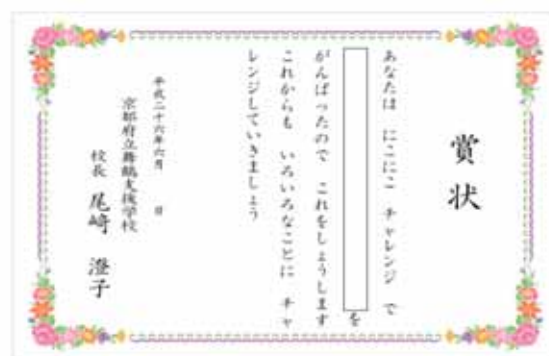 賞状
あなたは にこにこ チャレンジ で
を
がんばったので これをしょうします
これからも いろいろなことに チャ
レンジしていきましょう
平成二十六年六月 日
京都府立舞鶴支援学校
校長 尾崎 澄子